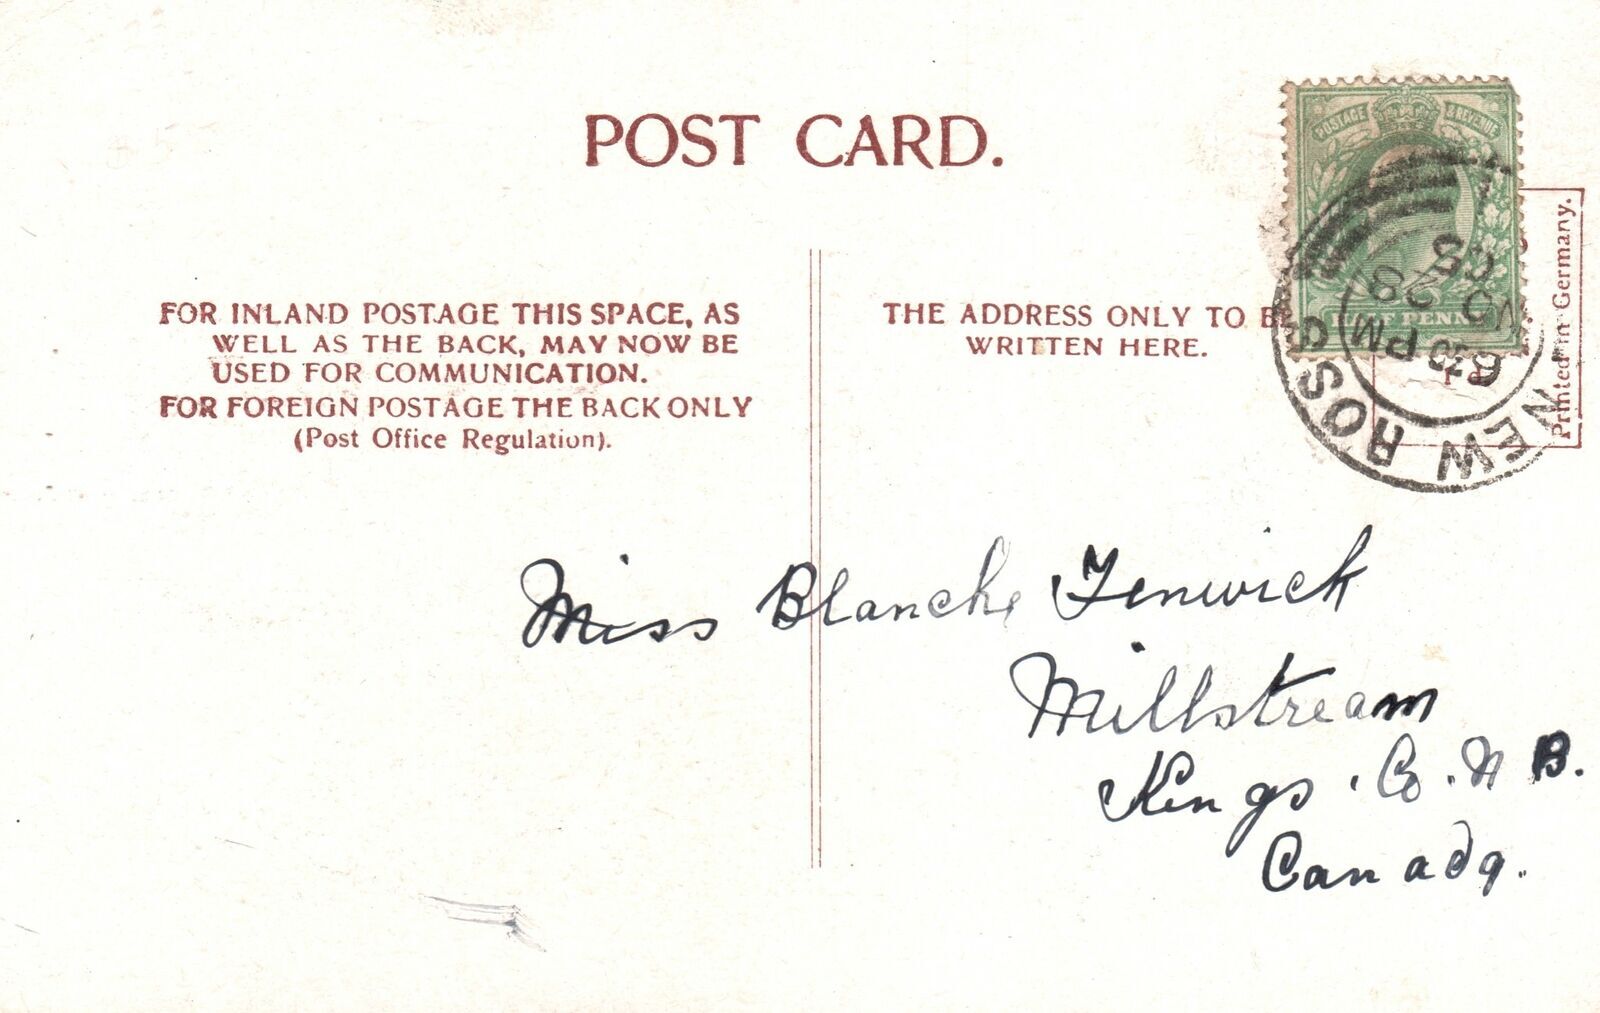 POST CARD.
POSTAGE & REVENUE
HALF PENNY
NEW ROSS
6 30 PM
NO 28
05
Printed in Germany.
FOR INLAND POSTAGE THIS SPACE, AS
WELL AS THE BACK, MAY NOW BE
USED FOR COMMUNICATION.
FOR FOREIGN POSTAGE THE BACK ONLY
(Post Office Regulation).
THE ADDRESS ONLY TO BE
WRITTEN HERE.
Miss Blanche Fenwick
Millstream
Kings. Co. N B.
Canada.